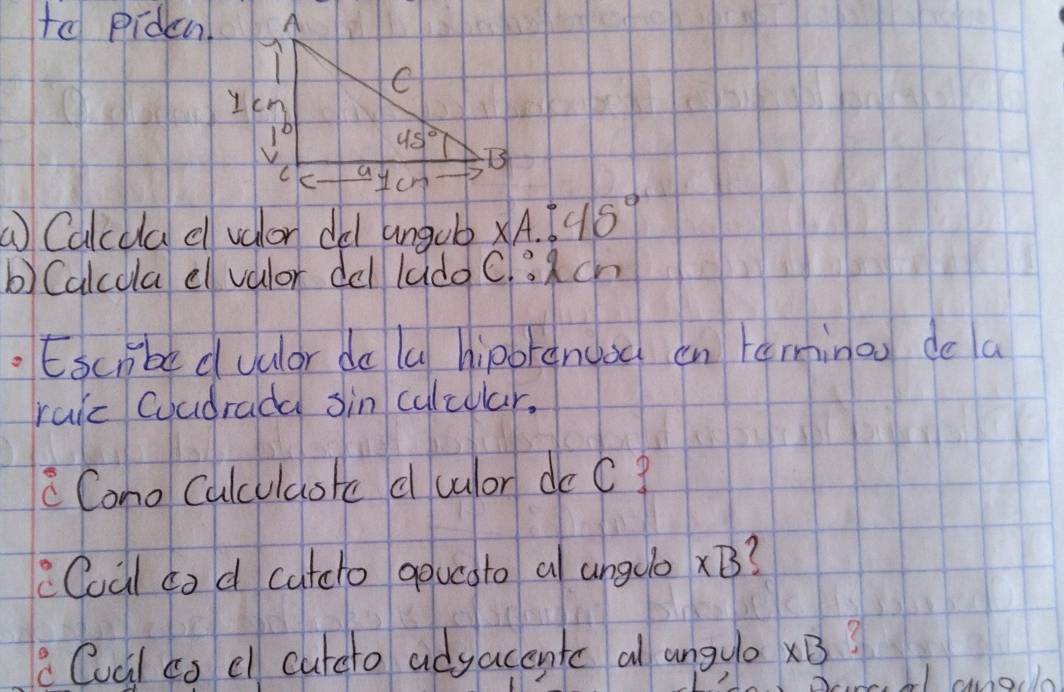 te piden.
A
1cm
b
C
45°
B
c
a 1cm
a) Calcula el valor del angulo xA.: 45°
b) Calcula el valor del lado C.: 2 cm
• Escribe el valor de la hipotenusa en terminos de la
raíz cuadrada sin calcular.
¿Como Calculaste el valor de C?
¿Cuál es el cateto opuesto al angulo xB?
¿Cuál es el cateto adyacente al angulo xB?
angulo